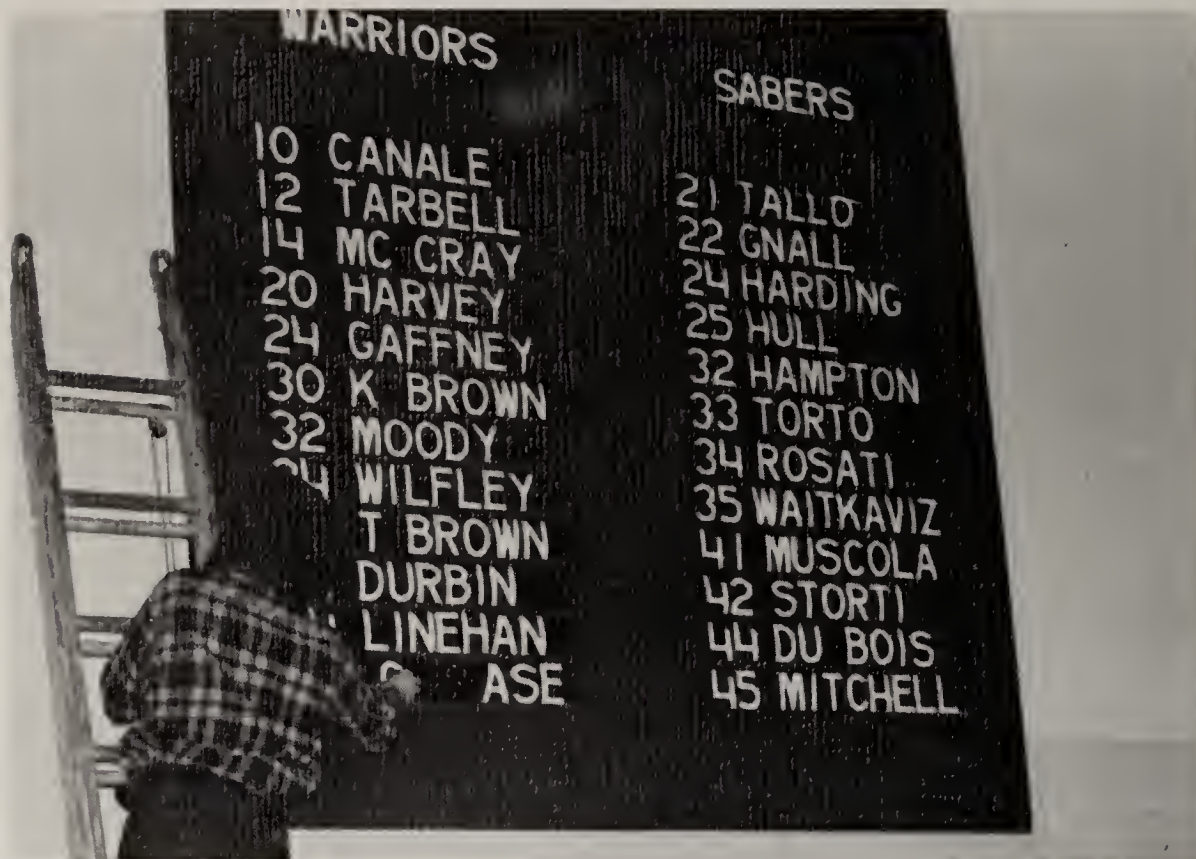 WARRIORS
10 CANALE
12 TARBELL
14 MC CRAY
20 HARVEY
24 GAFFNEY
30 K BROWN
32 MOODY
WILFLEY
T BROWN
DURBIN
LINEHAN
ASE
SABERS
21 TALLO
22 GNALL
24 HARDING
25 HULL
32 HAMPTON
33 TORTO
34 ROSATI
35 WAITKAVIZ
41 MUSCOLA
42 STORTI
44 DU BOIS
45 MITCHELL